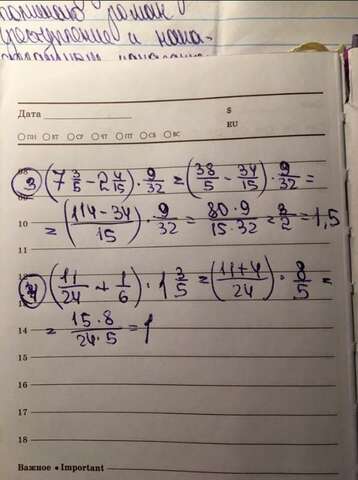 Дата
S
EU
ПН ВТ СР ЧТ ПТ СБ ВС
3) (7 3/5 - 2 4/15) · 9/32 = (38/5 - 34/15) · 9/32 =
= ((114 - 34)/15) · 9/32 = (80 · 9)/(15 · 32) = 3/2 = 1,5
10
11
12
4) (11/24 + 1/6) · 1 3/5 = ((11+4)/24) · 8/5 =
= (15 · 8)/(24 · 5) = 1
14
15
16
17
18
Важное • Important